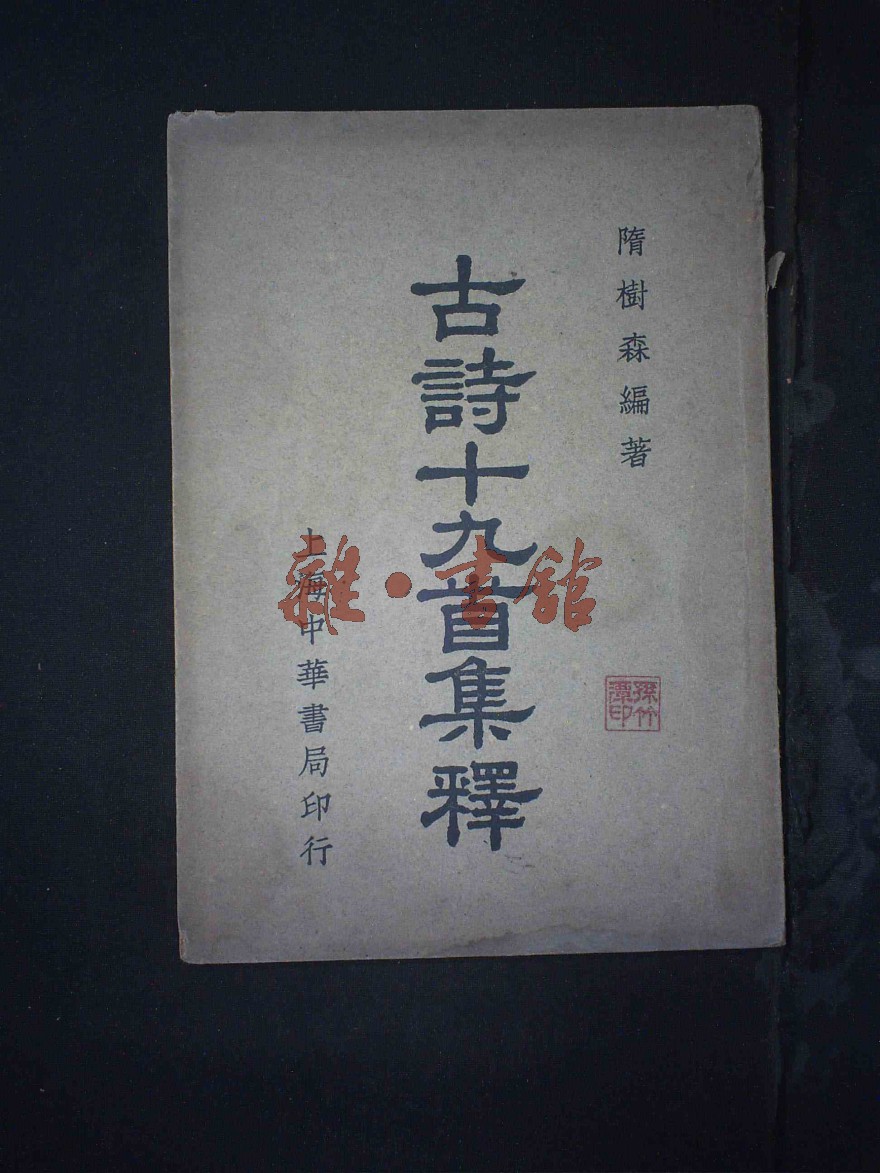 隋樹森編著
古詩十九首集釋
上海中華書局印行
雜·書館
孫竹
潭印